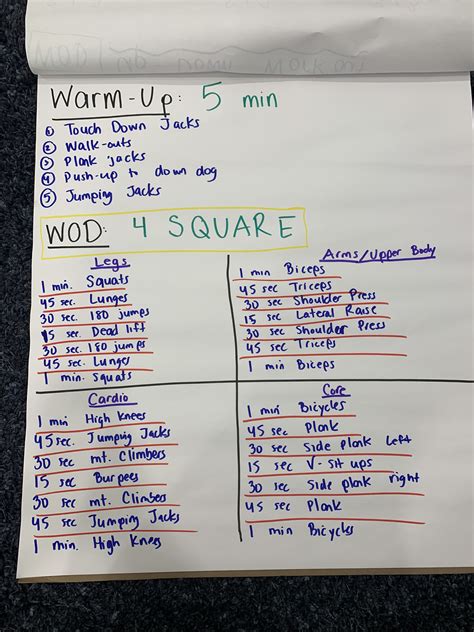 Warm-Up: 5 min
① Touch Down Jacks
② Walk-outs
③ Plank jacks
④ Push-up to down dog
⑤ Jumping Jacks
WOD: 4 SQUARE
Legs
1 min. Squats
45 sec. Lunges
30 sec. 180 jumps
15 sec. Dead lift
30 sec. 180 jumps
45 sec. Lunges
1 min. Squats
Arms/Upper Body
1 min Biceps
45 sec Triceps
30 sec Shoulder Press
15 sec Lateral Raise
30 sec Shoulder Press
45 sec Triceps
1 min Biceps
Cardio
1 min High Knees
45 sec. Jumping Jacks
30 sec mt. Climbers
15 sec Burpees
30 sec mt. Climbers
45 sec Jumping Jacks
1 min. High Knees
Core
1 min Bicycles
45 sec Plank
30 sec Side plank left
15 sec V-sit ups
30 sec Side plank right
45 sec Plank
1 min Bicycles